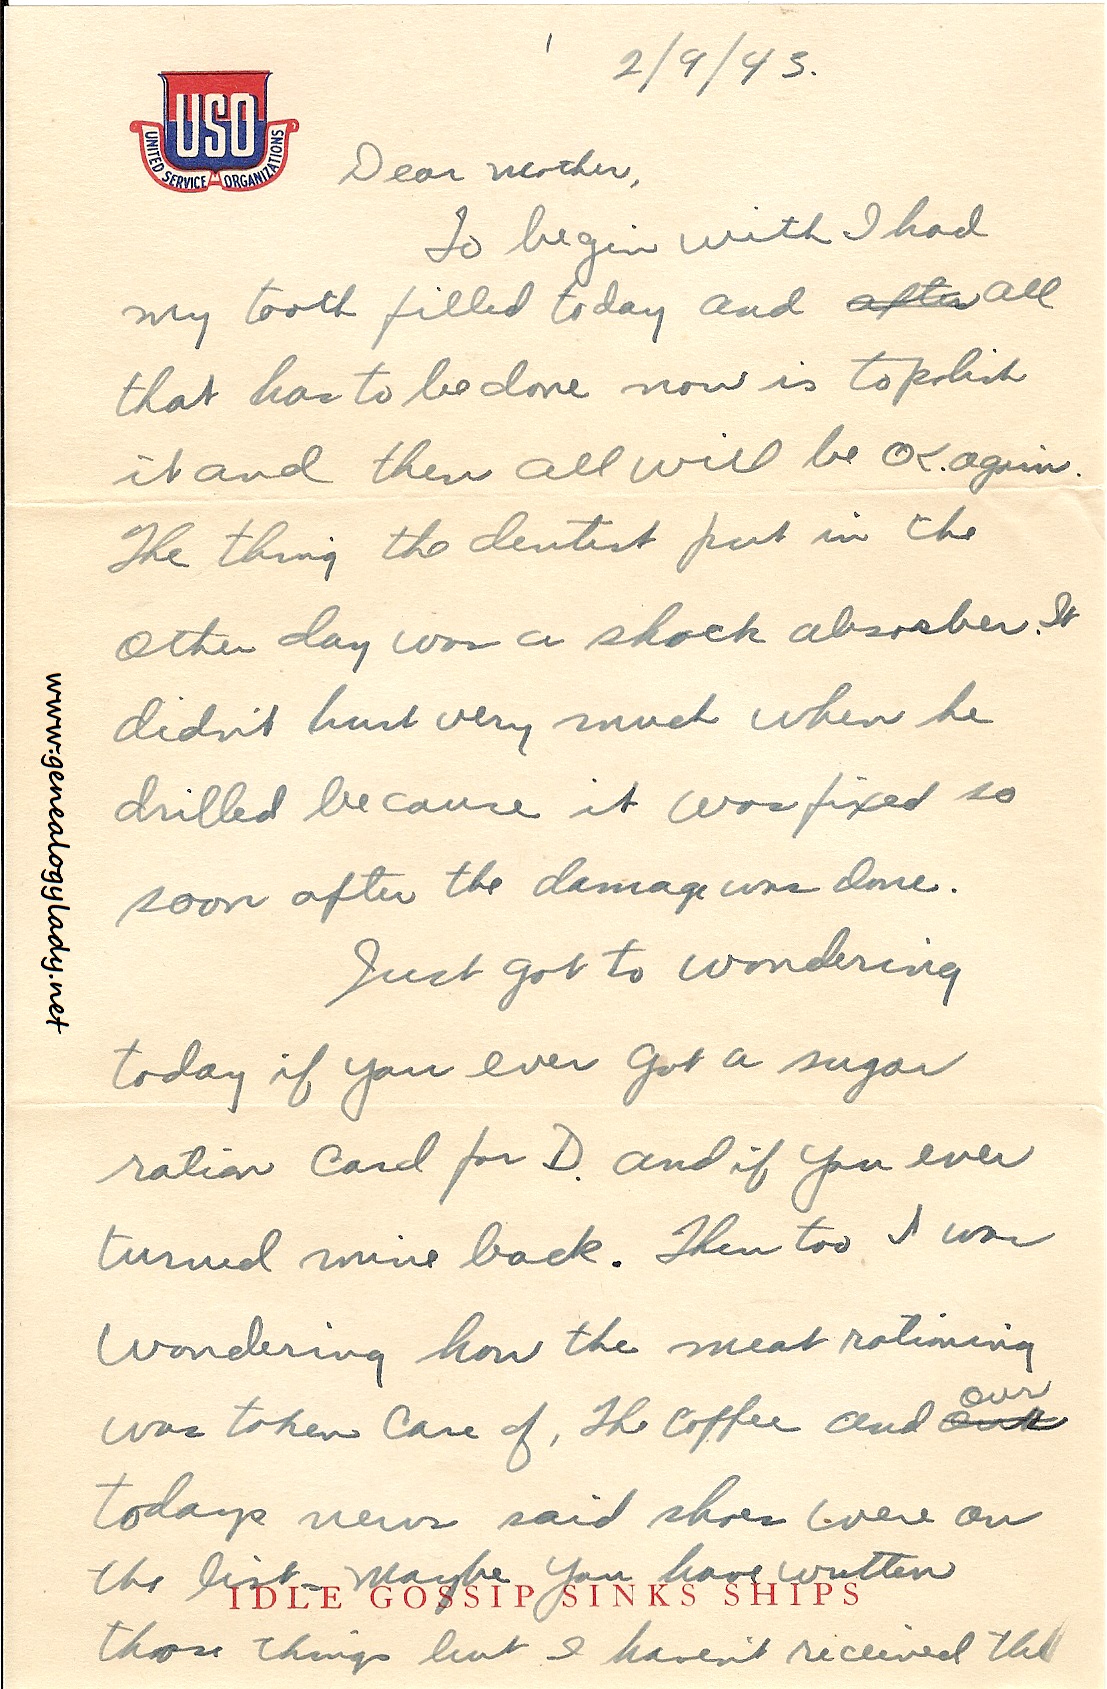 1
2/9/43.
USO
UNITED SERVICE ORGANIZATIONS
Dear Mother,
To begin with I had
my tooth filled today and after all
that has to be done now is to polish
it and then all will be OK. again.
The thing the dentist put in the
other day was a shock absorber. It
didn't hurt very much when he
drilled because it was fixed so
soon after the damage was done.
Just got to wondering
today if you ever got a sugar
ration card for D. and if you ever
turned mine back. Then too I was
wondering how the meat rationing
was taken care of, the coffee and our
todays news said shoes were on
the list – maybe you have written
IDLE GOSSIP SINKS SHIPS
those things but I haven't received the
www.genealogylady.net